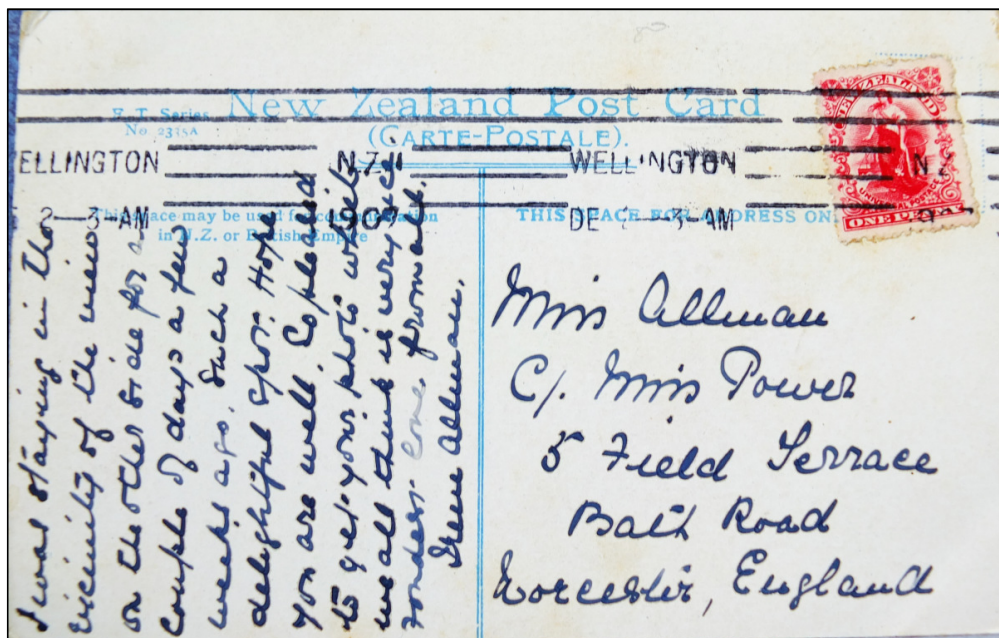 New Zealand Post Card
(CARTE-POSTALE).
F. T. Series
No 2375A
WELLINGTON N.Z. WELLINGTON N.Z.
2—3 AM DE 2—3—AM
This space may be used for communication
in N.Z. or British Empire
THIS SPACE FOR ADDRESS ON
NEW ZEALAND
UNIVERSAL POSTAGE
ONE PENNY
I was staying in the
vicinity of the view
on the other side for a
couple of days a few
weeks ago. Such a
delightful spot. Hope
you are well. So pleased
to get your photo which
we all think is very nice
Fondest love from all.
Irene Allman.
Miss Allman
C/. Miss Power
5 Field Terrace
Bath Road
Worcester, England